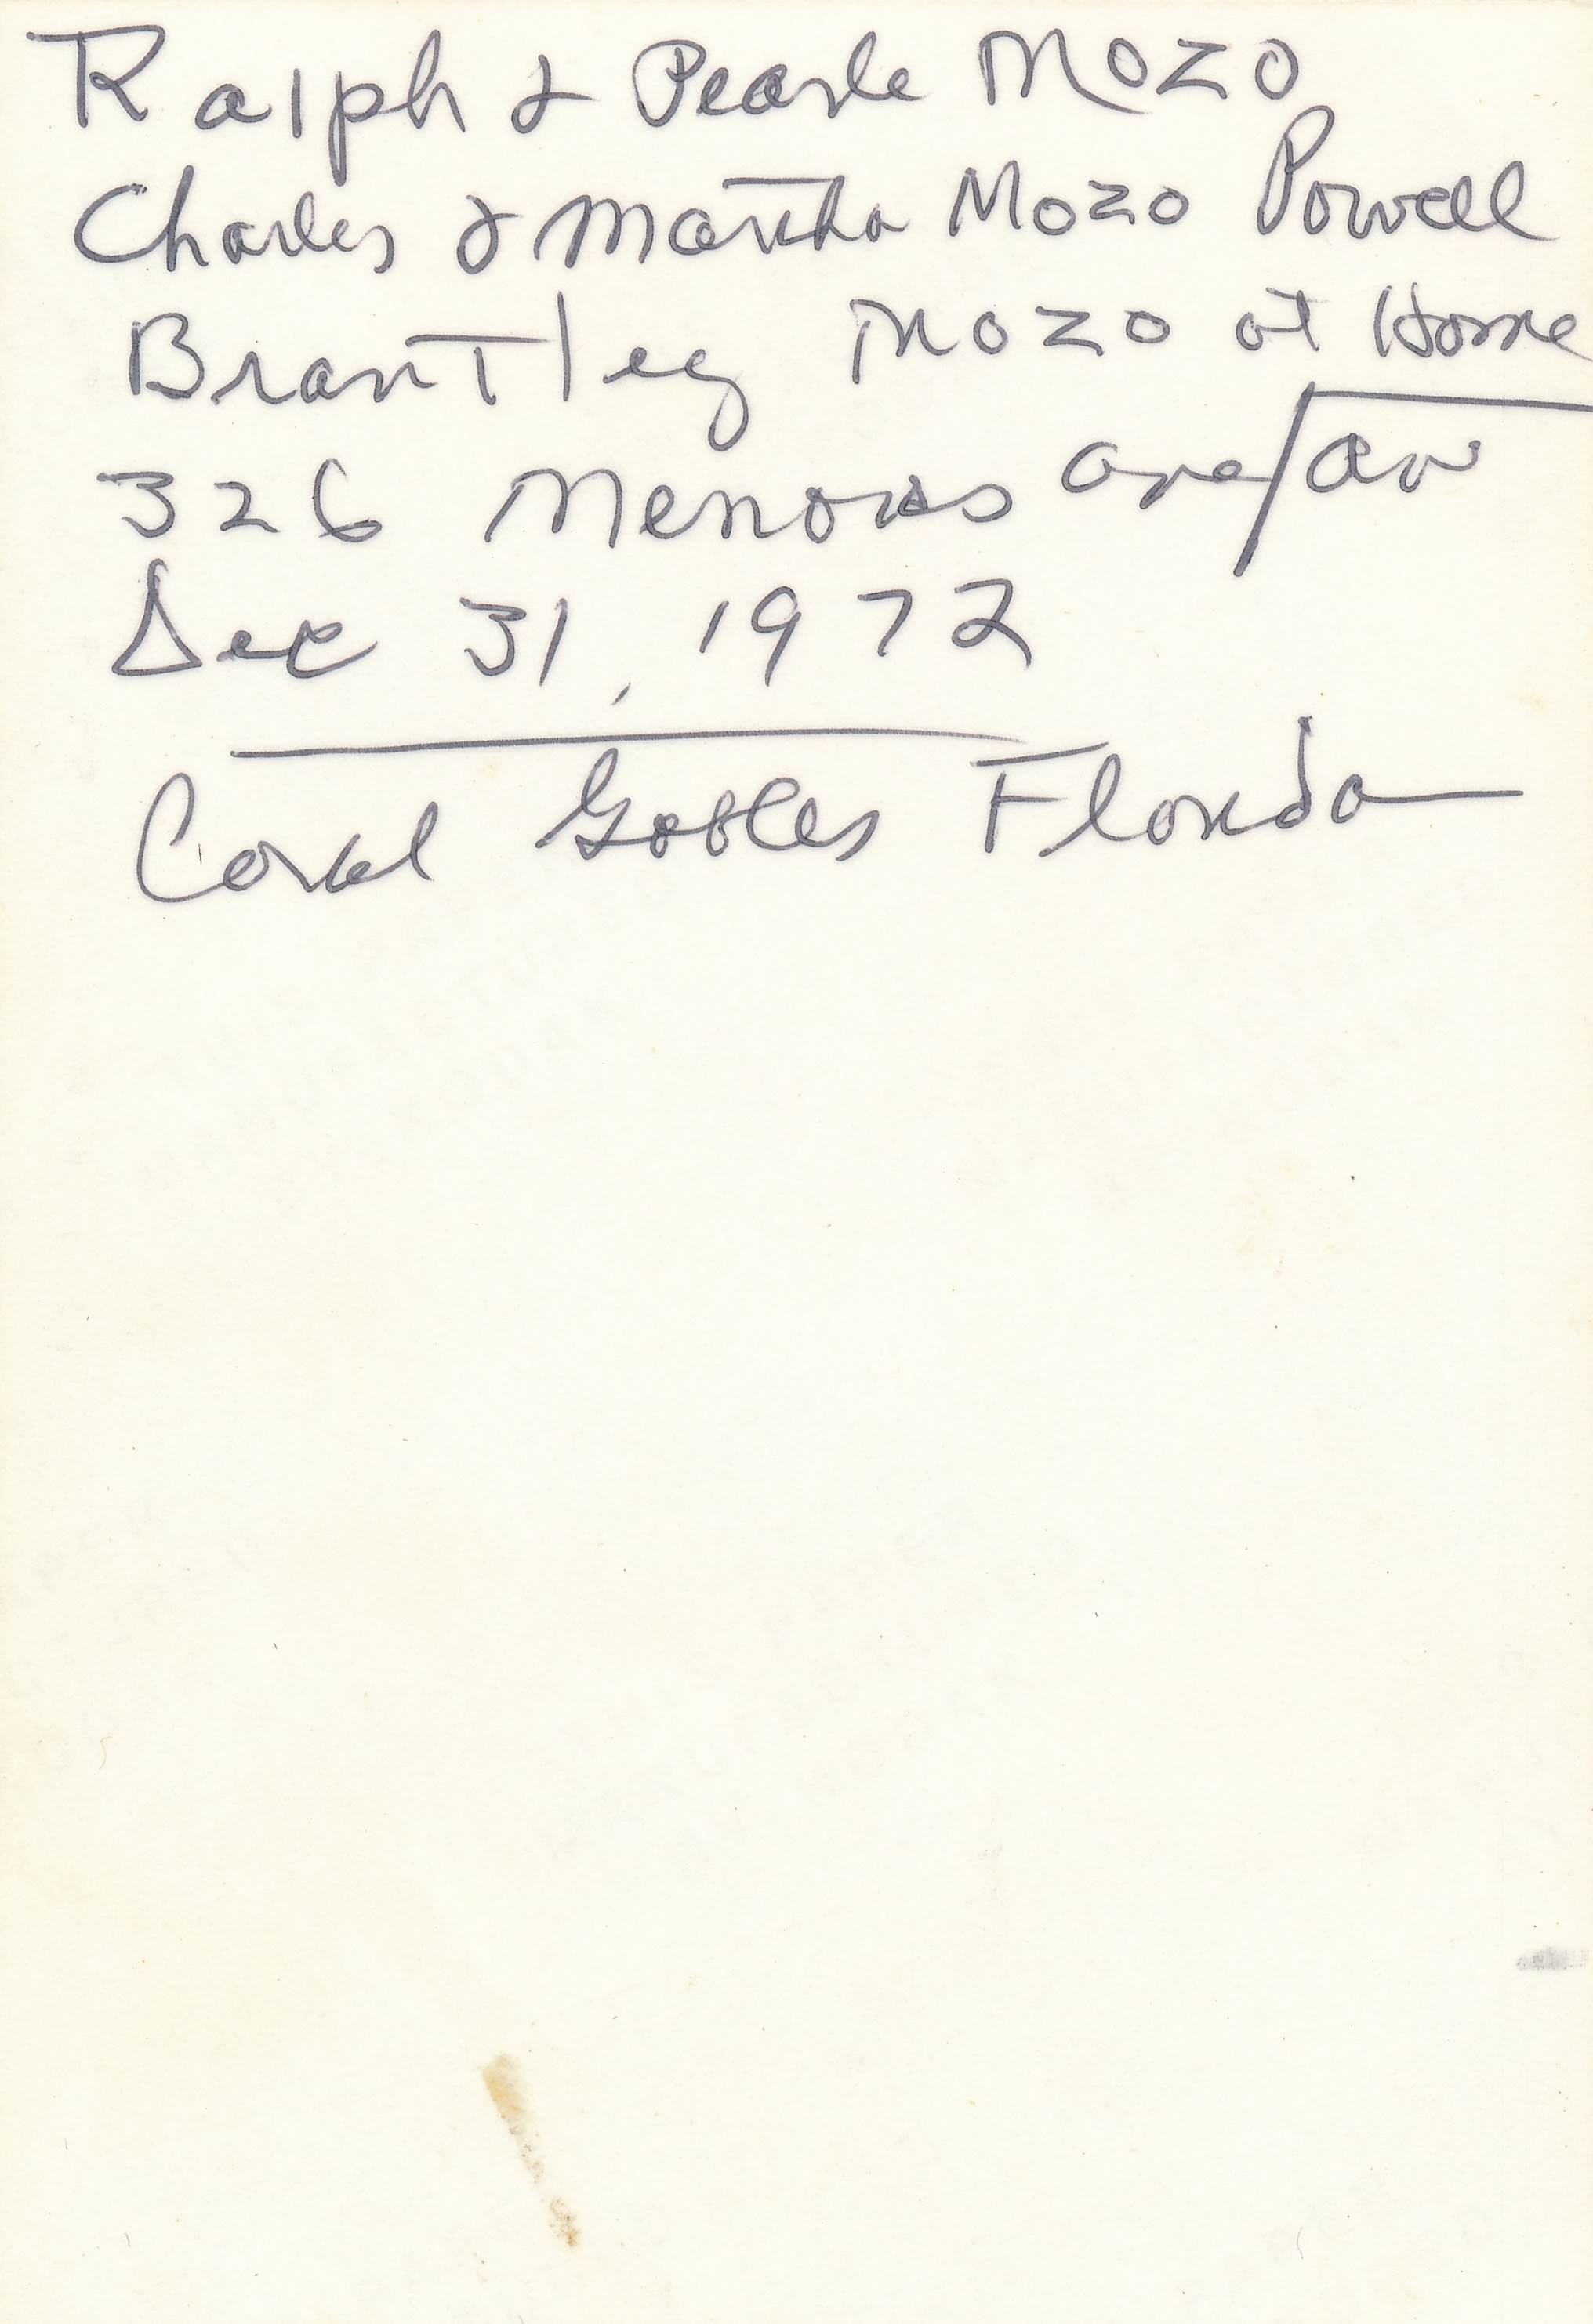 Ralph & Pearle Mozo
Charles & Martha Mozo Powell
Brantley Mozo at Home
326 Menores ave
Dec 31, 1972
Coral Gables Florida